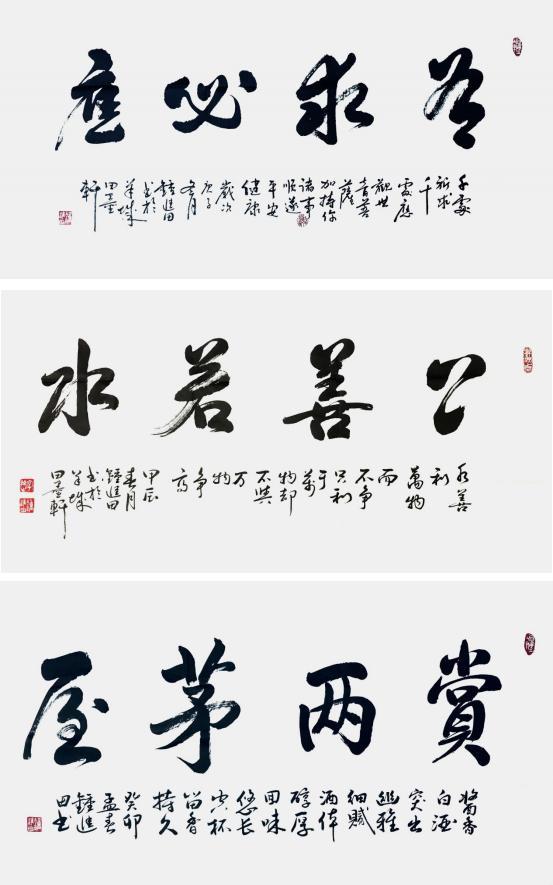 有求必應
千處
祈求
千
處應
觀世
音菩
薩
加持你
諸事
順遂
平安
健康
歲次
庚子
冬月
鍾進田
书於
羊城
田墨
軒
上善若水
水善
利
萬物
而
不争
只利
于
萬
物却
不與
万
物
争
高
甲辰
春月
鍾進田
书於
羊城
田墨軒
賞两茅屋
醬香
白酒
突出
幽雅
細膩
酒体
醇厚
回味
悠长
空杯
留香
持久
癸卯
孟春
鍾進
田书